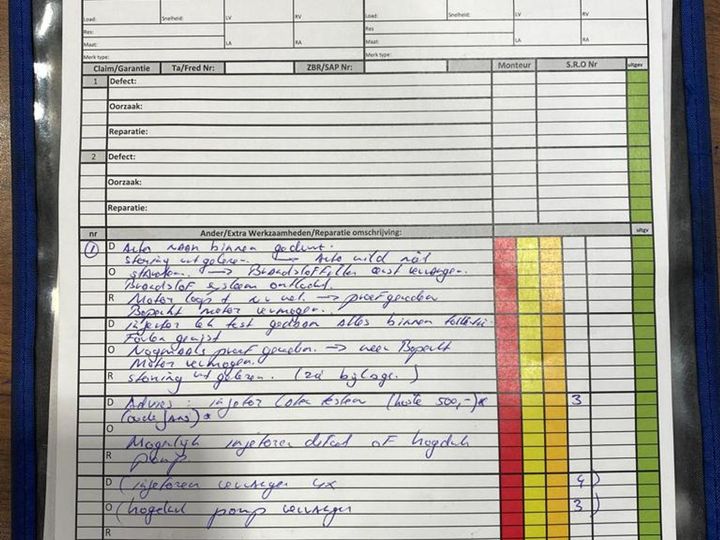 Load: Snelheid: LV RV Load: Snelheid: LV RV
Res: Res:
Maat: LA RA Maat: LA RA
Merk type: Merk type:
Claim/Garantie Ta/Fred Nr: ZBR/SAP Nr: Monteur S.R.O Nr uitgev
1 Defect:
Oorzaak:
Reparatie:
2 Defect:
Oorzaak:
Reparatie:
nr Ander/Extra Werkzaamheden/Reparatie omschrijving: uitgv
1 D Auto naar binnen geduwt.
storing uitgelezen. → Auto wild niet
O starten. → Brandstoffilter eerst vervangen.
Brandstof systeem ontlucht.
R Motor loopt nu wel. → proef gereden
Beperkt motor vermogen.
D injector lek test gedaan alles binnen tollerantie
Fouten gewist
O Nogmaals proef gereden. → weer Beperkt
Motor vermogen.
R storing uit gelezen. (zie bijlage.)
D Advies: injector laten testen (koste 500,-)* 3
O
Mogelijk injectoren defect of hogedruk
R pomp
D (injectoren vervangen 4x 4)
O (hogedruk pomp vervangen 3)
R